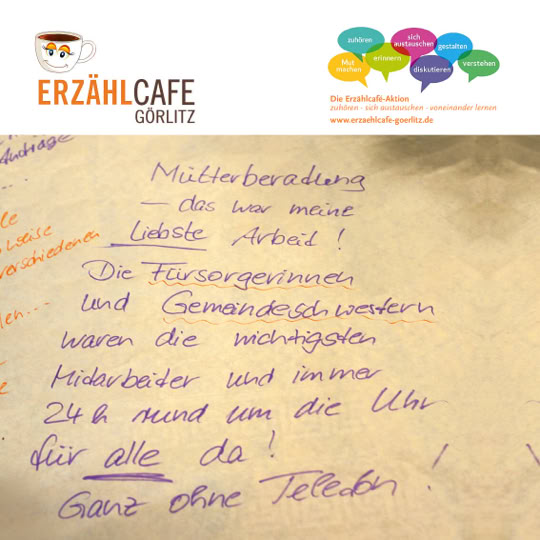 ERZÄHLCAFE
GÖRLITZ
zuhören
sich
austauschen
gestalten
Mut
machen
erinnern
diskutieren
verstehen
Die Erzählcafé-Aktion
zuhören · sich austauschen · voneinander lernen
www.erzaehlcafe-goerlitz.de
Mütterberadung
– das war meine
Liebste Arbeit!
Die Fürsorgerinnen
und Gemeindeschwestern
waren die wichtigsten
Midarbeider und immer
24 h rund um die Uhr
für alle da!
Ganz ohne Teledon!
verschiedenen